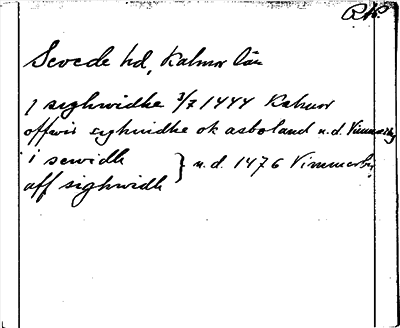 R.K.
Sevede hd, Kalmar län
J sighwidhe 3/7 1444 Kalmar
offwir syghuidhe ok asboland u.d. Vimmerby
i sewidh } u.d. 1476 Vimmerby
aff sighwidh